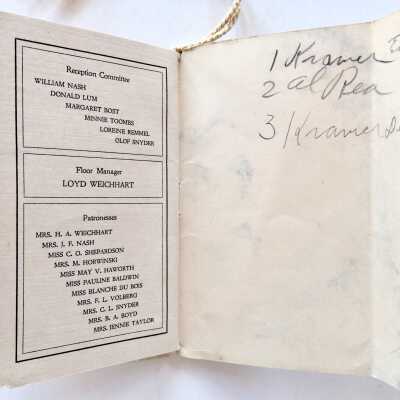 Reception Committee
WILLIAM NASH
DONALD LUM
MARGARET BOST
MINNIE TOOMBS
LOREINE REMMEL
OLOF SNYDER
Floor Manager
LOYD WEICHHART
Patronesses
MRS. H. A. WEICHHART
MRS. J. F. NASH
MISS C. O. SHEPARDSON
MRS. M. HORWINSKI
MISS MAY V. HAWORTH
MISS PAULINE BALDWIN
MISS BLANCHE DU BOIS
MRS. F. L. VOLBERG
MRS. C. L. SNYDER
MRS. B. A. BOYD
MRS. JENNIE TAYLOR
1 Kramer
2 Al Rea
3 Kramer